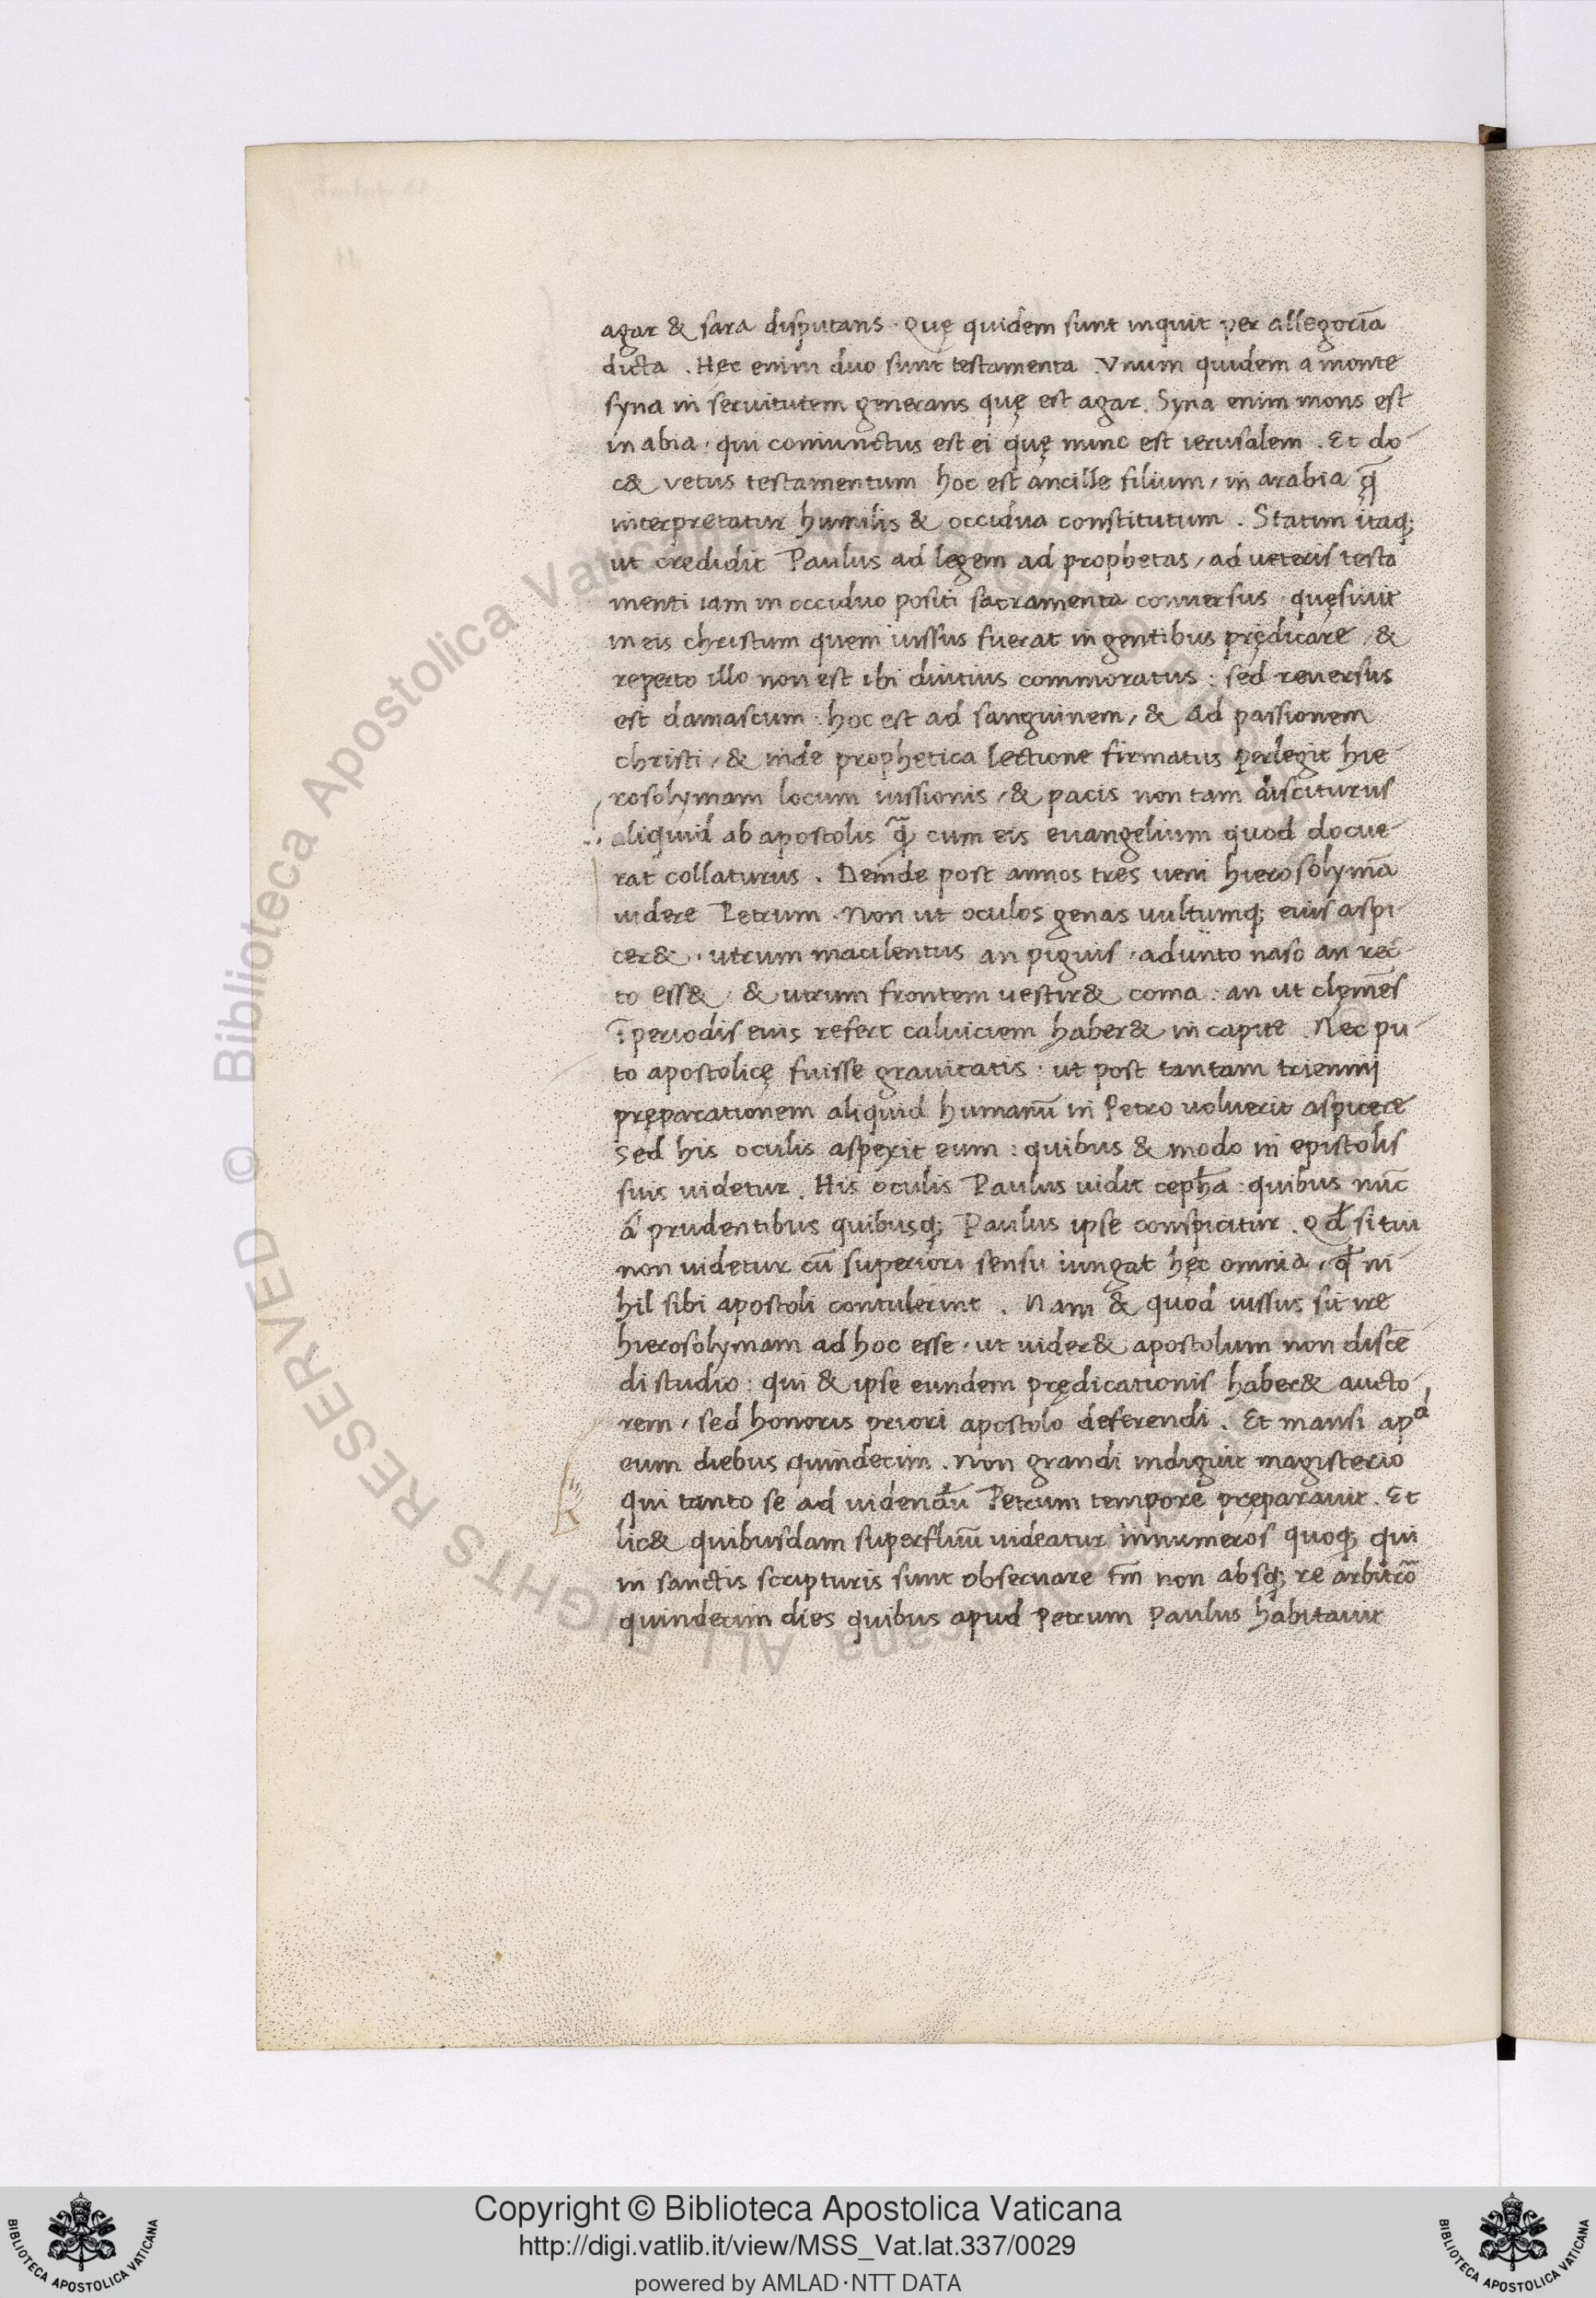 agar & sara disputans · Quę quidem sunt inquit per allegoriā
dicta . Hęc enim duo sunt testamenta . Vnum quidem a monte
syna in seruitutem generans quę est agar . Syna enim mons est
in abia · qui coniunctus est ei quę nunc est ierusalem . Et do-
c& vetus testamentum hoc est ancille filium , in arabia q̄
interpretatur humilis & occidua constitutum . Statim itaq;
ut credidit Paulus ad legem ad prophetas , ad veteris testa
menti iam in occiduo positi sacramenta conuersus · quęsiuit
in eis christum quem iussus fuerat in gentibus prędicare , &
reperto illo non est ibi diutius commoratus : sed reuersus
est damascum · hoc est ad sanguinem , & ad passionem
christi , & inde prophetica lectione firmatus perlegit hie-
rosolymam locum iussionis , & pacis non tam disciturus
aliquid ab apostolis q̄ cum eis euangelium quod docue-
rat collaturus . Deinde post annos tres ueni hierosolymā
uidere Petrum . Non ut oculos genas uultumq; eius aspi-
cer& · utrum macilentus an piguis · adunto naso an rec-
to ess& · & utrum frontem uestir& coma : an ut clęmēs
ī periodis eius refert caluiciem haber& in capite . Nec pu-
to apostolicę fuisse grauitatis · ut post tantam triennij
pręparationem aliquid humanū in Petro uoluerit aspicere
sed his oculis aspexit eum : quibus & modo in epistolis
suis uidetur . His oculis Paulus uidit cephā : quibus nūc
á prudentibus quibusq; Paulus ipse conspicitur . Qđ si tui
non uidetur cū superiori sensu iungat hęc omnia , qđ ni
hil sibi apostoli contulerint . Nam & quod iussus sit ire
hierosolymam ad hoc esse · ut uider& apostolum non discē-
di studio : qui & ipse eundem prędicationis haber& aucto-
rem , sed honoris priori apostolo deferendi . Et mansi apᵈ
eum diebus quindecim . Non grandi indiguit magisterio
qui tanto se ad uidendū Petrum tempore pręparauit . Et
lic& quibusdam superfluū uideatur innumeros quoq; qui
in sanctis scripturis sunt obseruare tm̄ non absq; re arbitrō
quindecim dies quibus apud Petrum Paulus habitauit
© Biblioteca Apostolica Vaticana ALL RIGHTS RESERVED
Copyright © Biblioteca Apostolica Vaticana
http://digi.vatlib.it/view/MSS_Vat.lat.337/0029
powered by AMLAD·NTT DATA
BIBLIOTECA APOSTOLICA VATICANA
BIBLIOTECA APOSTOLICA VATICANA